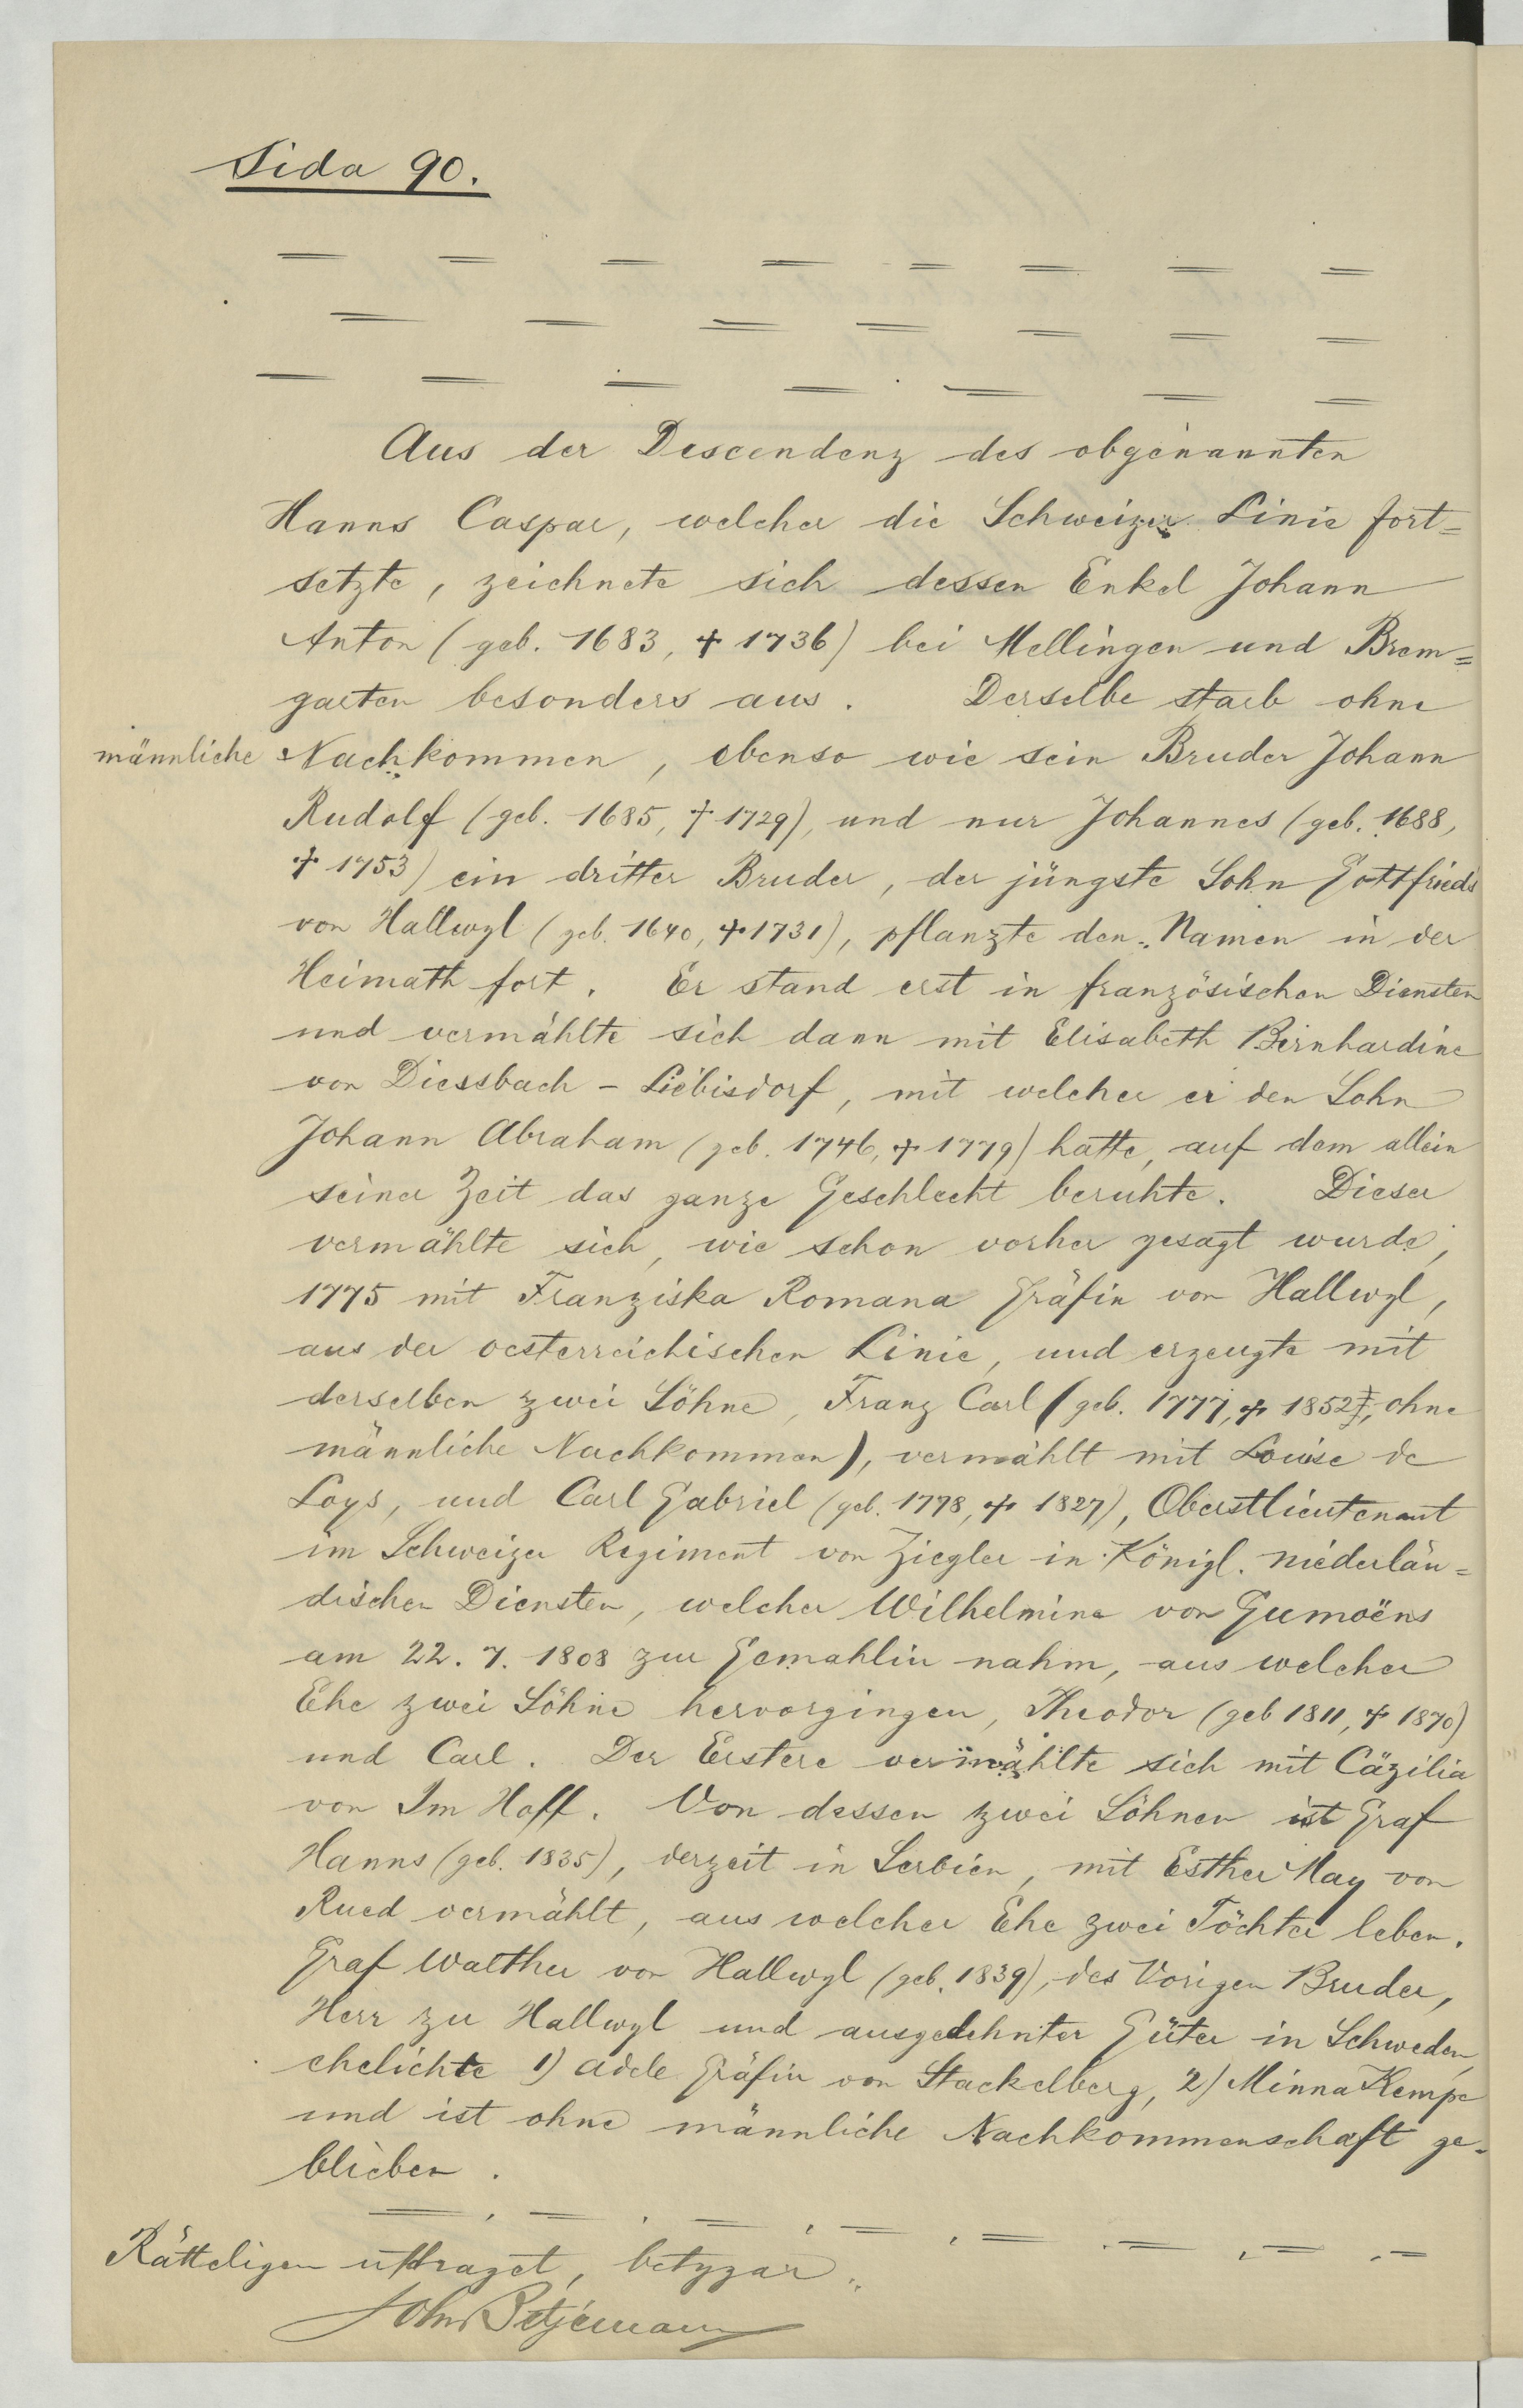 Sida 90.
= = = = = = = =
= = = = = = =
= = = = = = =
Aus der Descendenz des obgenannten
Hanns Caspar, welcher die Schweizer Linie fort=
setzte, zeichnete sich dessen Enkel Johann
Anton (geb. 1683, † 1736) bei Mellingen und Brem=
garten besonders aus. Derselbe starb ohne
männliche Nachkommen, ebenso wie sein Bruder Johann
Rudolf (geb. 1685, † 1729), und nur Johannes (geb. 1688,
† 1753) ein dritter Bruder, der jüngste Sohn Gottfried's
von Hallwyl (geb. 1640, † 1731), pflanzte den Namen in der
Heimath fort. Er stand erst in französischen Diensten
und vermählte sich dann mit Elisabeth Bernhardine
von Diessbach - Liebisdorf, mit welcher er den Sohn
Johann Abraham (geb. 1746, † 1779) hatte, auf dem allein
seiner Zeit das ganze Geschlecht beruhte. Dieser
vermählte sich, wie schon vorher gesagt wurde,
1775 mit Franziska Romana Gräfin von Hallwyl,
aus der oesterreichischen Linie, und erzeugte mit
derselben zwei Söhne, Franz Carl (geb. 1777, † 1852, ohne
männliche Nachkommen), vermählt mit Louise de
Loys, und Carl Gabriel (geb. 1778, † 1827), Oberstlieutenant
im Schweizer Regiment von Ziegler in Königl. niederlän=
dischen Diensten, welcher Wilhelmine von Gumoëns
am 22. 7. 1808 zur Gemahlin nahm, aus welcher
Ehe zwei Söhne hervorgingen, Theodor (geb 1811, † 1870)
und Carl. Der Erstere vermählte sich mit Cäzilia
von Im Hoff. Von dessen zwei Söhnen ist Graf
Hanns (geb. 1835), derzeit in Serbien, mit Esther May von
Rued vermählt, aus welcher Ehe zwei Töchter leben.
Graf Walther von Hallwyl (geb. 1839), des Vorigen Bruder,
Herr zu Hallwyl und ausgedehnter Güter in Schweden,
ehelichte 1) Adele Gräfin von Stackelberg, 2) Minna Kempe
und ist ohne männliche Nachkommenschaft ge-
blieben.
= . = . = . = . = . = . = . =
Rätteligen utdraget, betygar
John Betjemann